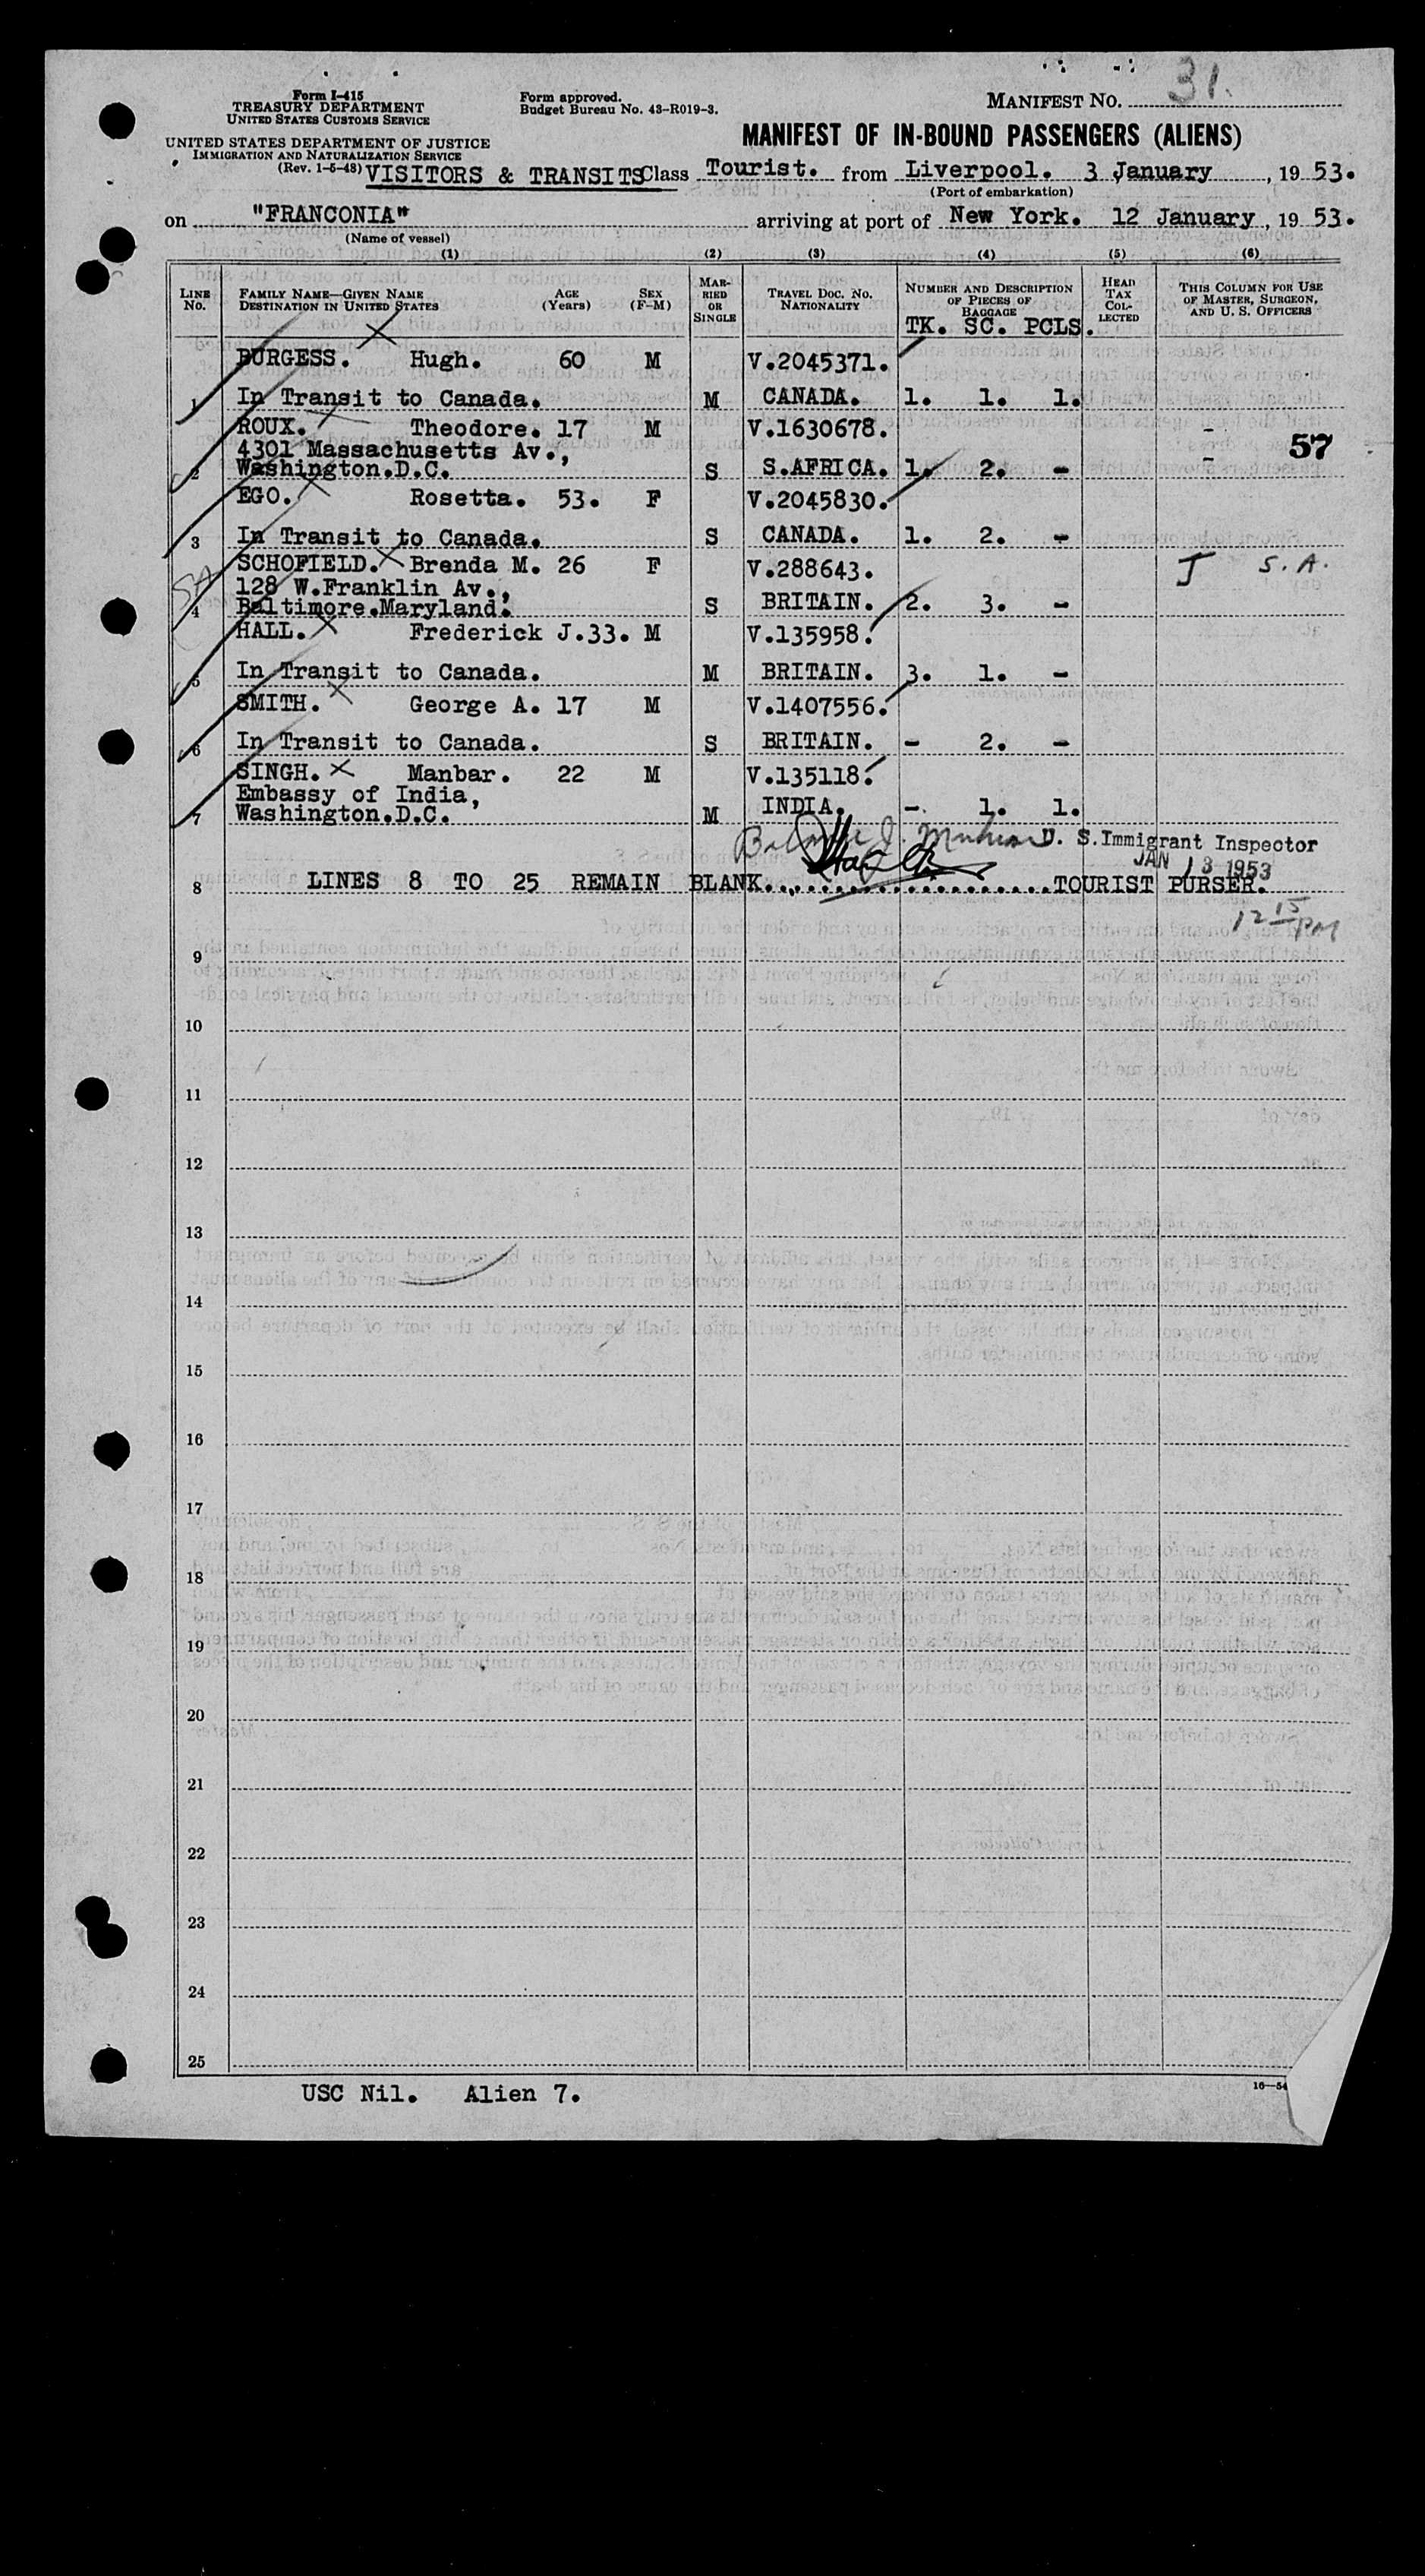 31.
Form I-415
TREASURY DEPARTMENT
UNITED STATES CUSTOMS SERVICE
Form approved.
Budget Bureau No. 43-R019-3.
MANIFEST NO.
UNITED STATES DEPARTMENT OF JUSTICE
IMMIGRATION AND NATURALIZATION SERVICE
(Rev. 1-5-48)
MANIFEST OF IN-BOUND PASSENGERS (ALIENS)
VISITORS & TRANSITS Class Tourist. from Liverpool. 3 January, 1953.
(Port of embarkation)
on "FRANCONIA" arriving at port of New York. 12 January, 1953.
(Name of vessel)
(1) (2) (3) (4) (5) (6)
LINE NO. FAMILY NAME—GIVEN NAME DESTINATION IN UNITED STATES AGE (Years) SEX (F-M) MARRIED OR SINGLE TRAVEL DOC. NO. NATIONALITY NUMBER AND DESCRIPTION OF PIECES OF BAGGAGE HEAD TAX COLLECTED THIS COLUMN FOR USE OF MASTER, SURGEON, AND U. S. OFFICERS
TK. SC. PCLS.
BURGESS. Hugh. 60 M V.2045371.
1 In Transit to Canada. M CANADA. 1. 1. 1.
ROUX. Theodore. 17 M V.1630678.
4301 Massachusetts Av., 57
2 Washington.D.C. S S.AFRICA. 1. 2. -
EGO. Rosetta. 53. F V.2045830.
3 In Transit to Canada. S CANADA. 1. 2. -
SCHOFIELD. Brenda M. 26 F V.288643. J S.A.
SA 128 W.Franklin Av.,
4 Baltimore.Maryland. S BRITAIN. 2. 3. -
HALL. Frederick J.33. M V.135958.
5 In Transit to Canada. M BRITAIN. 3. 1. -
SMITH. George A. 17 M V.1407556.
6 In Transit to Canada. S BRITAIN. - 2. -
SINGH. Manbar. 22 M V.135118.
Embassy of India,
7 Washington.D.C. M INDIA. - 1. 1.
U. S. Immigrant Inspector
JAN 13 1953
8 LINES 8 TO 25 REMAIN BLANK......................TOURIST PURSER.
12 15 PM
9
10
11
12
13
14
15
16
17
18
19
20
21
22
23
24
25
16—54
USC Nil. Alien 7.